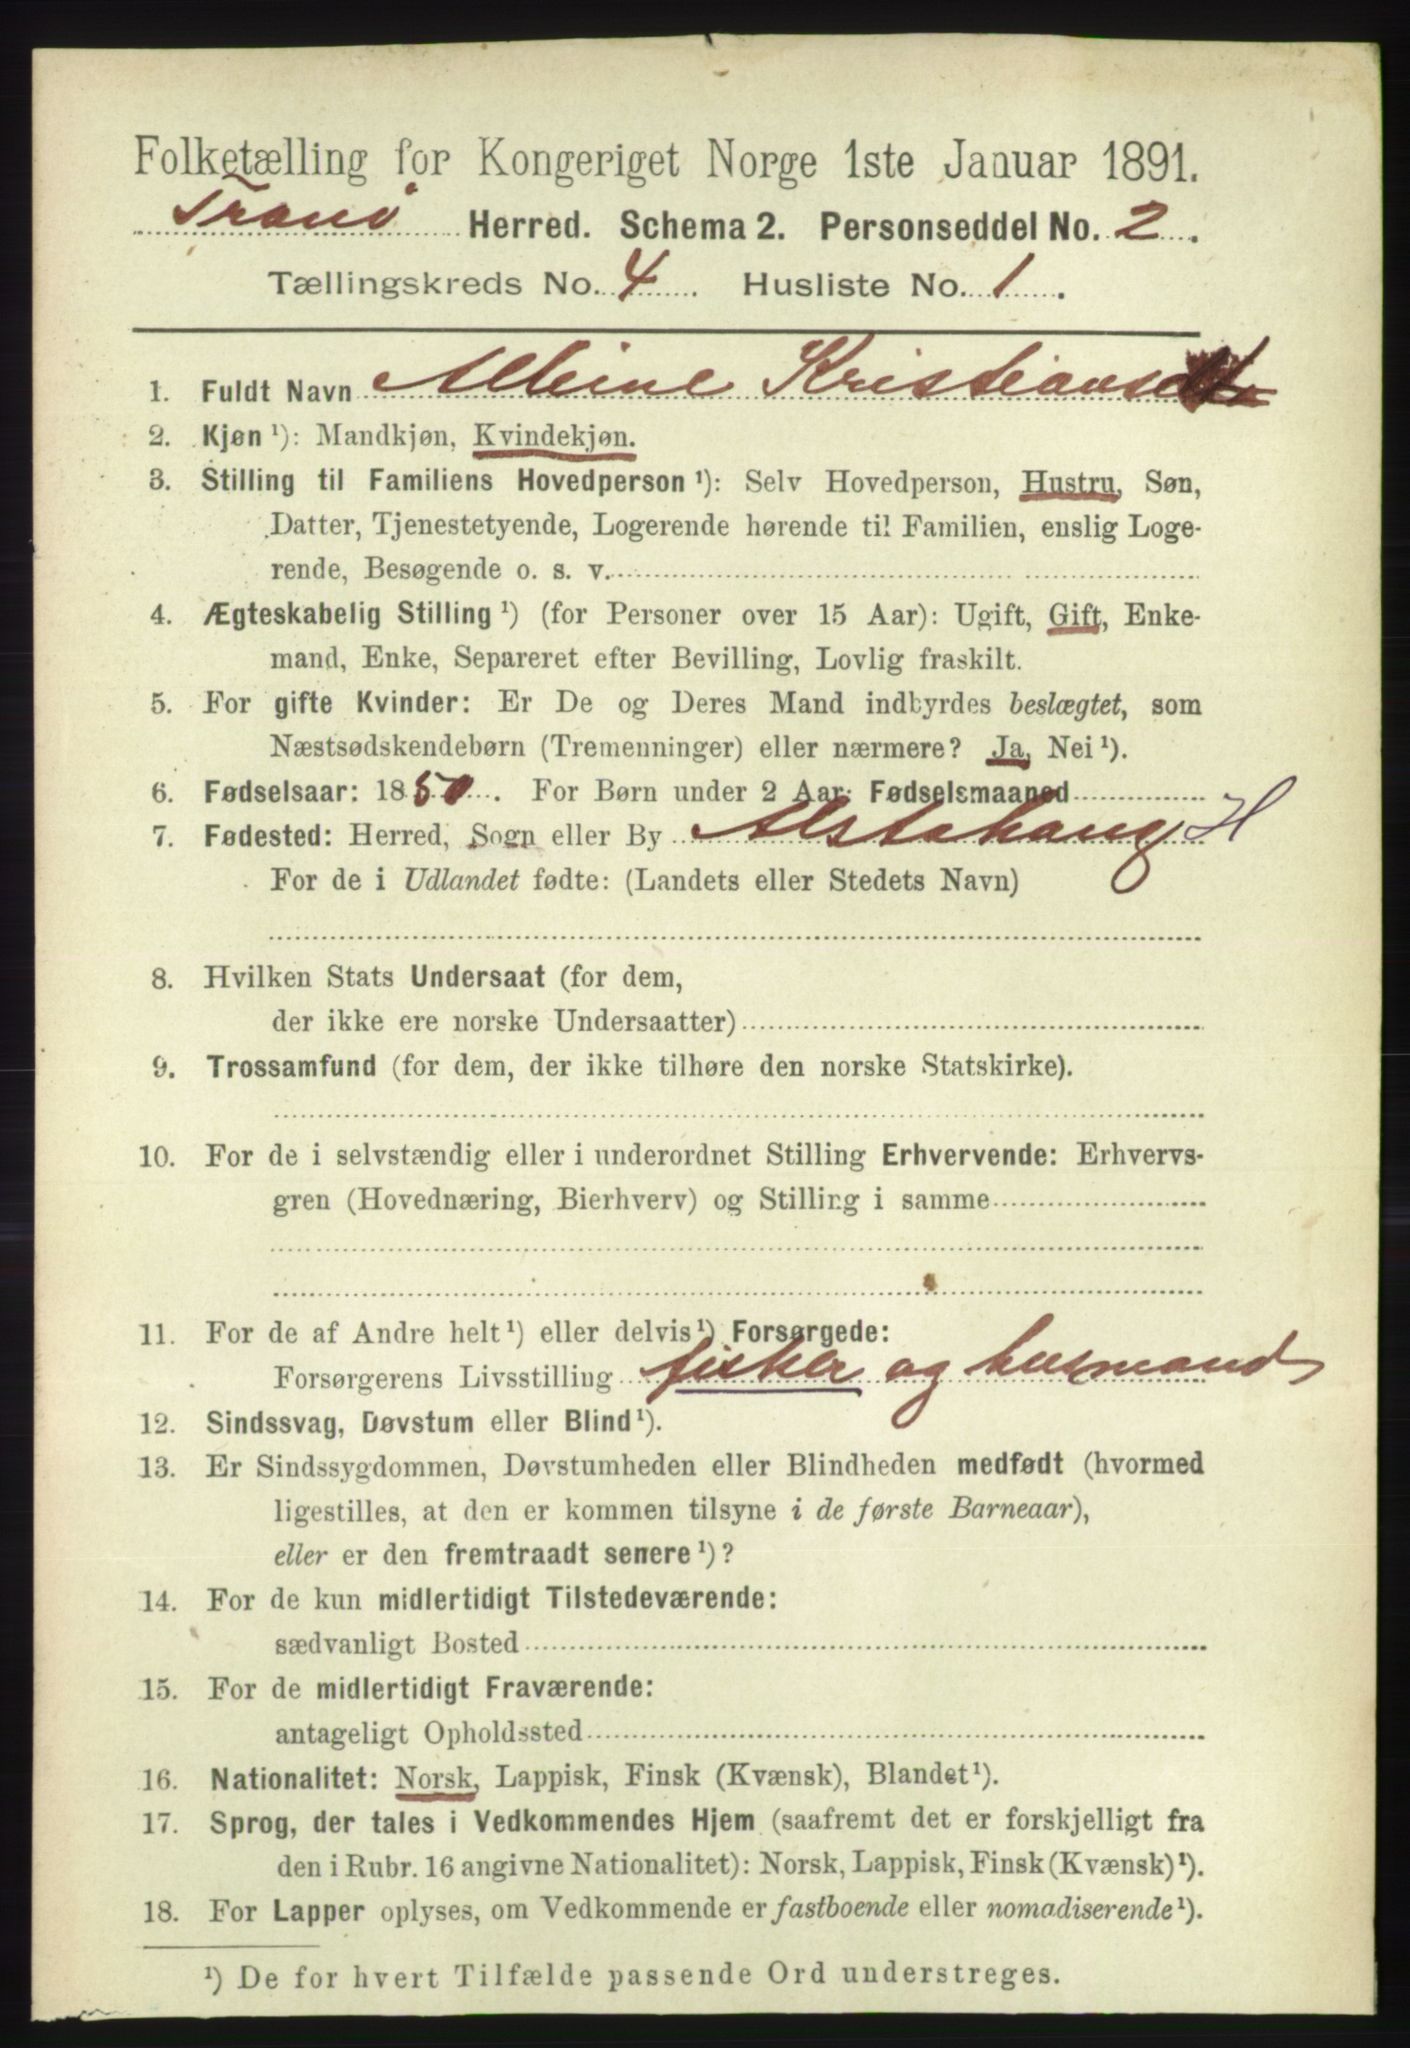 Folketælling for Kongeriget Norge 1ste Januar 1891.
Tranø Herred. Schema 2. Personseddel No. 2.
Tællingskreds No. 4 Husliste No. 1.
1. Fuldt Navn Albine
2. Kjøn ¹): Mandkjøn, Kvindekjøn.
3. Stilling til Familiens Hovedperson ¹): Selv Hovedperson, Hustru, Søn,
Datter, Tjenestetyende, Logerende hørende til Familien, enslig Loge-
rende, Besøgende o. s. v.
4. Ægteskabelig Stilling ¹) (for Personer over 15 Aar): Ugift, Gift, Enke-
mand, Enke, Separeret efter Bevilling, Lovlig fraskilt.
5. For gifte Kvinder: Er De og Deres Mand indbyrdes beslægtet, som
Næstsødskendebørn (Tremenninger) eller nærmere? Ja, Nei ¹).
6. Fødselsaar: 1850. For Børn under 2 Aar: Fødselsmaaned
7. Fødested: Herred, Sogn eller By Alstahaug H
For de i Udlandet fødte: (Landets eller Stedets Navn)
8. Hvilken Stats Undersaat (for dem,
der ikke ere norske Undersaatter)
9. Trossamfund (for dem, der ikke tilhøre den norske Statskirke).
10. For de i selvstændig eller i underordnet Stilling Erhvervende: Erhvervs-
gren (Hovednæring, Bierhverv) og Stilling i samme
11. For de af Andre helt ¹) eller delvis ¹) Forsørgede:
Forsørgerens Livsstilling fisker og husmand
12. Sindssvag, Døvstum eller Blind ¹).
13. Er Sindssygdommen, Døvstumheden eller Blindheden medfødt (hvormed
ligestilles, at den er kommen tilsyne i de første Barneaar),
eller er den fremtraadt senere ¹)?
14. For de kun midlertidigt Tilstedeværende:
sædvanligt Bosted
15. For de midlertidigt Fraværende:
antageligt Opholdssted
16. Nationalitet: Norsk, Lappisk, Finsk (Kvænsk), Blandet ¹).
17. Sprog, der tales i Vedkommendes Hjem (saafremt det er forskjelligt fra
den i Rubr. 16 angivne Nationalitet): Norsk, Lappisk, Finsk (Kvænsk) ¹).
18. For Lapper oplyses, om Vedkommende er fastboende eller nomadiserende ¹).
¹) De for hvert Tilfælde passende Ord understreges.